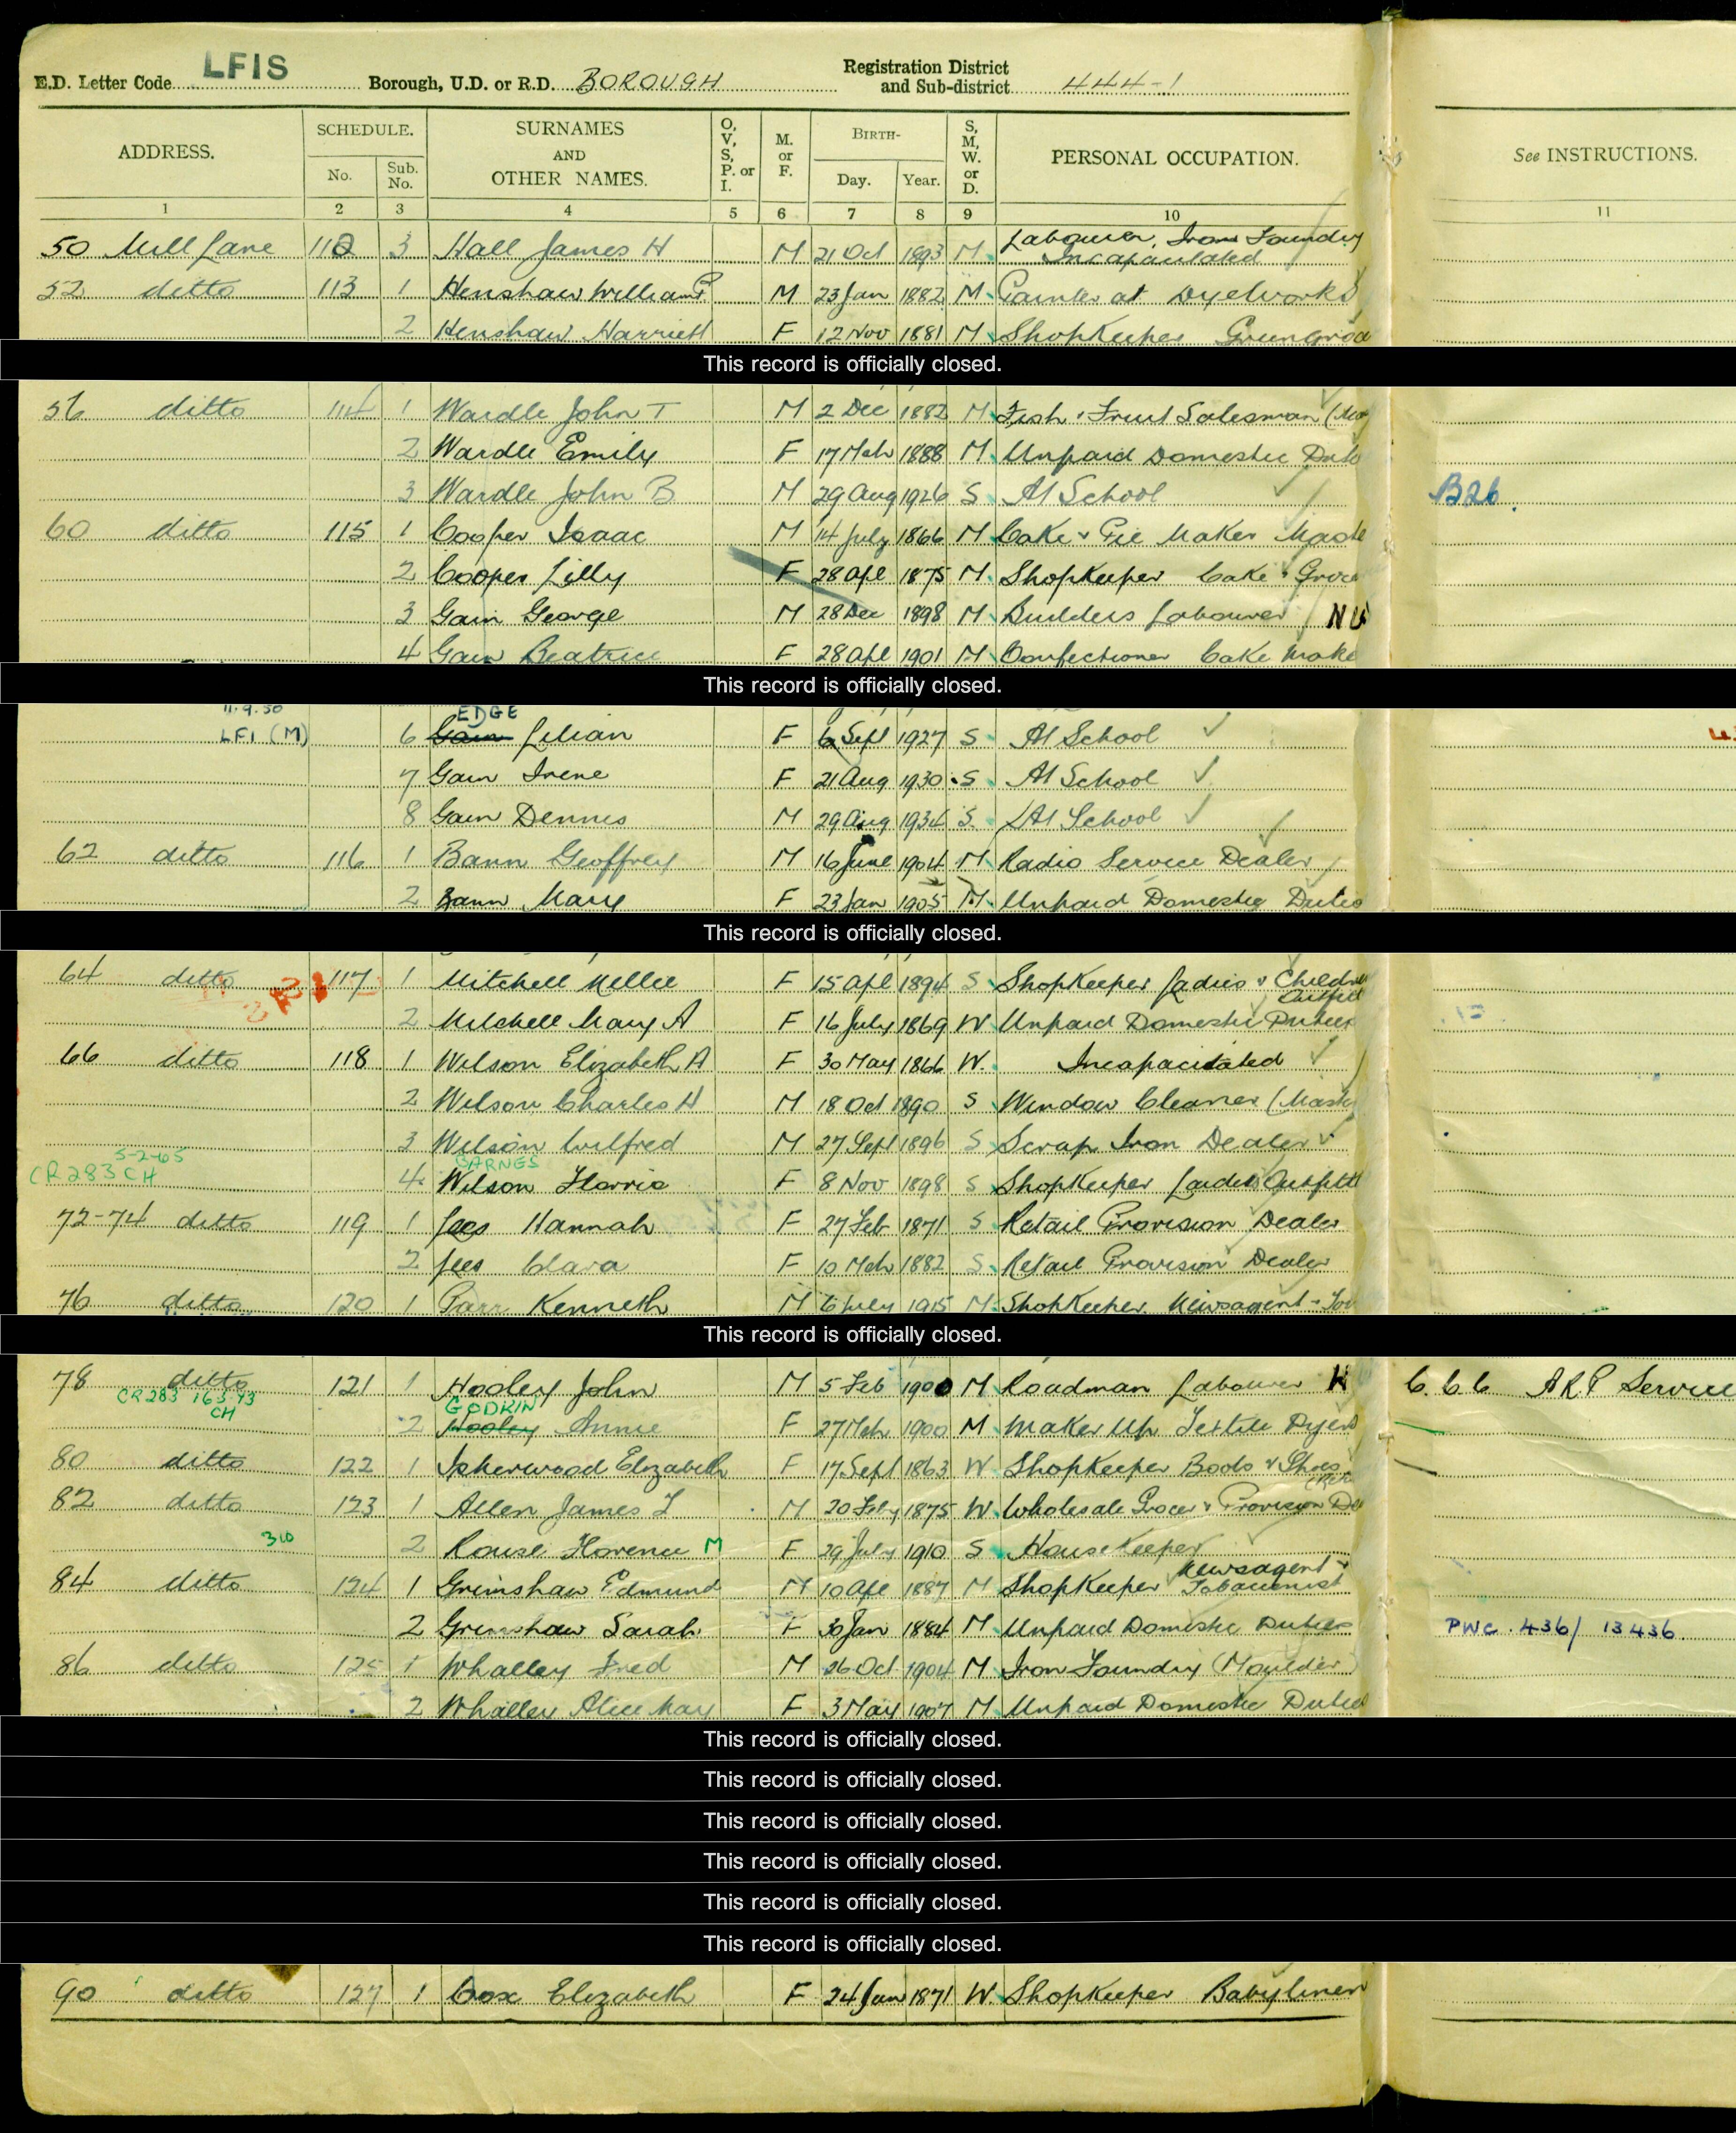 E.D. Letter Code LFIS Borough, U.D. or R.D. BOROUGH Registration District and Sub-district 444-1
ADDRESS. SCHEDULE. No. Sub. No. SURNAMES AND OTHER NAMES. O, V, S, P. or I. M. or F. BIRTH- Day. Year. S, M, W. or D. PERSONAL OCCUPATION. See INSTRUCTIONS.
1 2 3 4 5 6 7 8 9 10 11
50 Mill Lane 112 3 Hall James H M 21 Oct 1893 M Labourer, Iron Foundry Incapacitated
52 ditto 113 1 Henshaw William M 23 Jan 1882 M Painter at Dyeworks
2 Henshaw Harriett F 12 Nov 1881 M ShopKeeper
This record is officially closed.
56 ditto 114 1 Wardle John T M 2 Dec 1882 M Fish & Fruit Salesman
2 Wardle Emily F 17 Mch 1888 M Unpaid Domestic
3 Wardle John B M 29 Aug 1926 S At School B26.
60 ditto 115 1 Cooper Isaac M 14 July 1866 M Cake & Pie Maker
2 Cooper Lilly F 28 Apl 1875 M ShopKeeper Cake &
3 Gain George M 28 Dec 1898 M Builders Labourer
4 Gain Beatrice F 28 Apl 1901 M Confectioner Cake
This record is officially closed.
11.9.50 EDGE
LFI (M) 6 Gain Lilian F 6 Sept 1927 S At School
7 Gain Irene F 21 Aug 1930 S At School
8 Gain Dennis M 29 Aug 1934 S At School
62 ditto 116 1 Bann Geoffrey M 16 June 1904 M Radio Service Dealer
2 Bann Mary F 23 Jan 1905 M Unpaid Domestic Duties
This record is officially closed.
64 ditto 117 1 Mitchell Nellie F 15 Apl 1894 S ShopKeeper Ladies &
2 Mitchell Mary A F 16 July 1869 W Unpaid Domestic Duties
66 ditto 118 1 Wilson Elizabeth A F 30 May 1866 W. Incapacitated
2 Wilson Charles H M 18 Oct 1890 S Window Cleaner
3 Wilson Wilfred M 27 Sept 1896 S Scrap Iron Dealer
5-2-65 BARNES
CR283 CH 4 Wilson Florrie F 8 Nov 1898 S ShopKeeper Ladies
72-74 ditto 119 1 Lees Hannah F 27 Feb 1871 S Retail Provision Dealer
2 Lees Clara F 10 Mch 1882 S Retail Provision Dealer
76 ditto 120 1 Parr Kenneth M 6 July 1915 M ShopKeeper Newsagent
This record is officially closed.
78 ditto 121 1 Hooley John M 5 Feb 1900 M Roadman Labourer ARP Service
CR283 CH GODKIN
2 Hooley Annie F 27 Mch 1900 M Maker Up Textile
80 ditto 122 1 Isherwood Elizabeth F 17 Sept 1863 W ShopKeeper Boots & Shoes
82 ditto 123 1 Allen James M 20 Feby 1875 W Wholesale Grocer & Provision
310 2 Rouse Florence M F 29 July 1910 S HouseKeeper
84 ditto 124 1 Grimshaw Edmund M 10 Apl 1887 M ShopKeeper Newsagent & Tobacconist
2 Grimshaw Sarah F 30 Jan 1884 M Unpaid Domestic Duties PWC. 436/ 13436
86 ditto 125 1 Whalley Fred M 26 Oct 1904 M Iron Foundry (Moulder)
2 Whalley Alice May F 3 May 1907 M Unpaid Domestic Duties
This record is officially closed.
This record is officially closed.
This record is officially closed.
This record is officially closed.
This record is officially closed.
This record is officially closed.
90 ditto 127 1 Cox Elizabeth F 24 Jan 1871 W. ShopKeeper Babylinen